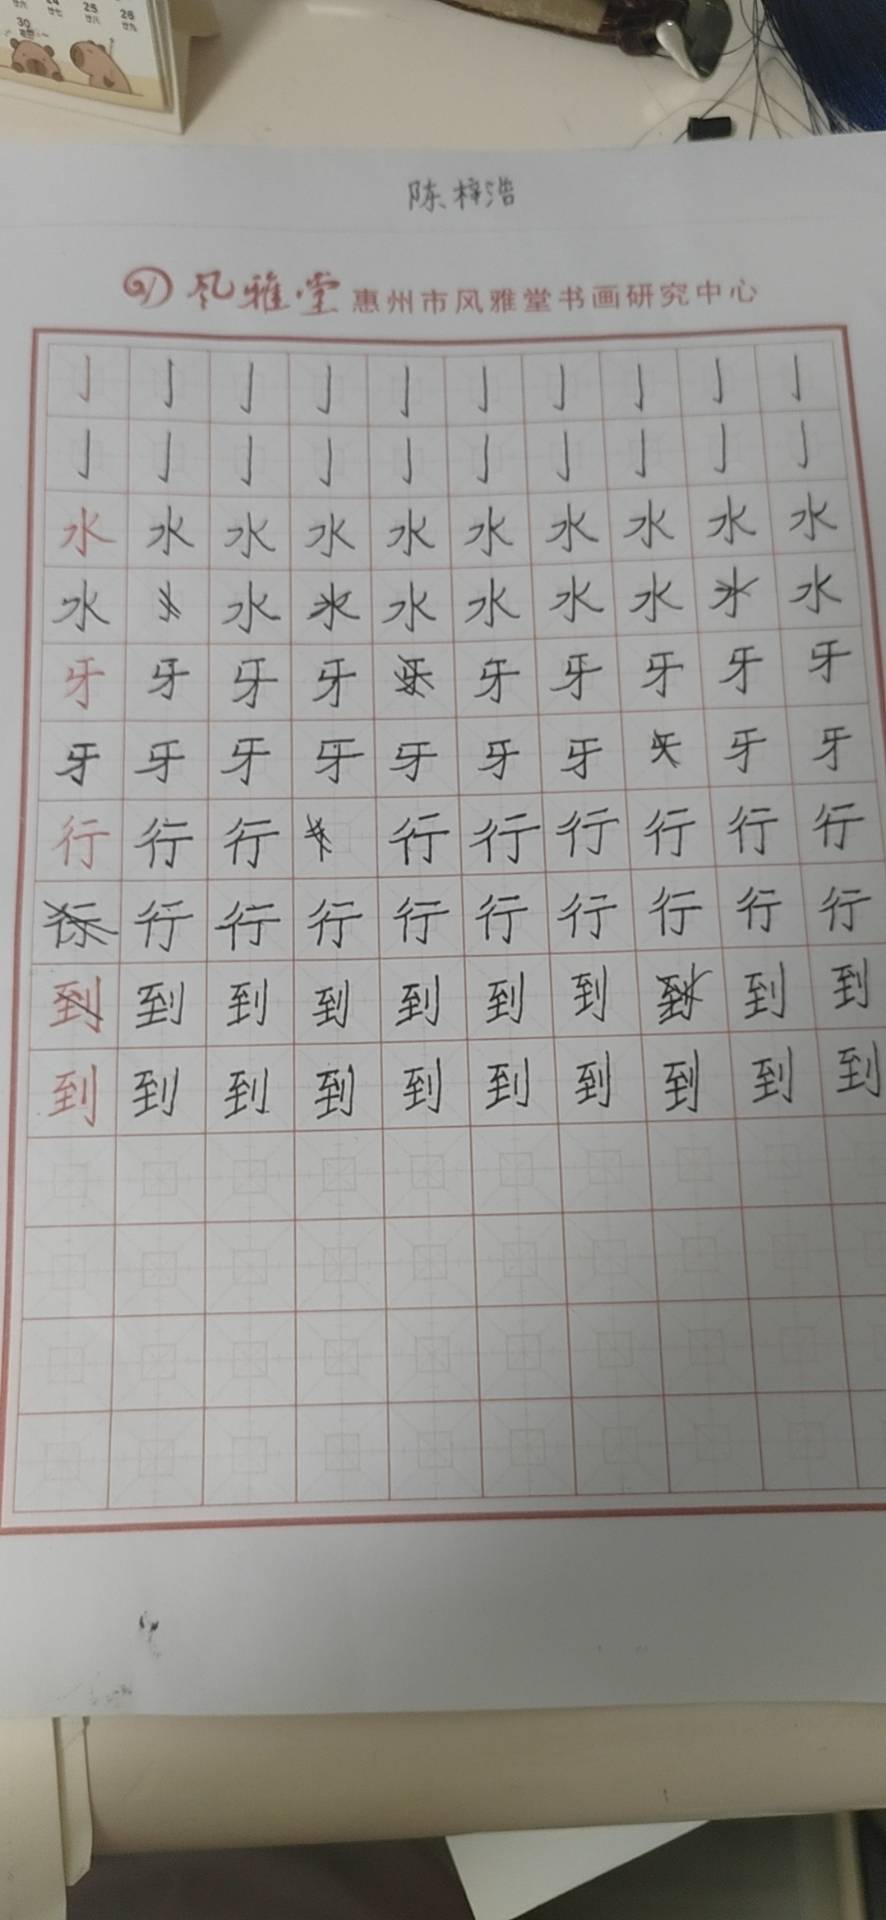 24 25 26
廿七 廿八 廿九
30
陈梓浩
风雅堂 惠州市风雅堂书画研究中心
亅 亅 亅 亅 亅 亅 亅 亅 亅 亅
亅 亅 亅 亅 亅 亅 亅 亅 亅 亅
水 水 水 水 水 水 水 水 水 水
水 水 水 水 水 水 水 水
牙 牙 牙 牙 牙 牙 牙 牙 牙
牙 牙 牙 牙 牙 牙 牙 牙 牙
行 行 行 行 行 行 行 行 行
行 行 行 行 行 行 行 行 行
到 到 到 到 到 到 到 到 到 到
到 到 到 到 到 到 到 到 到 到